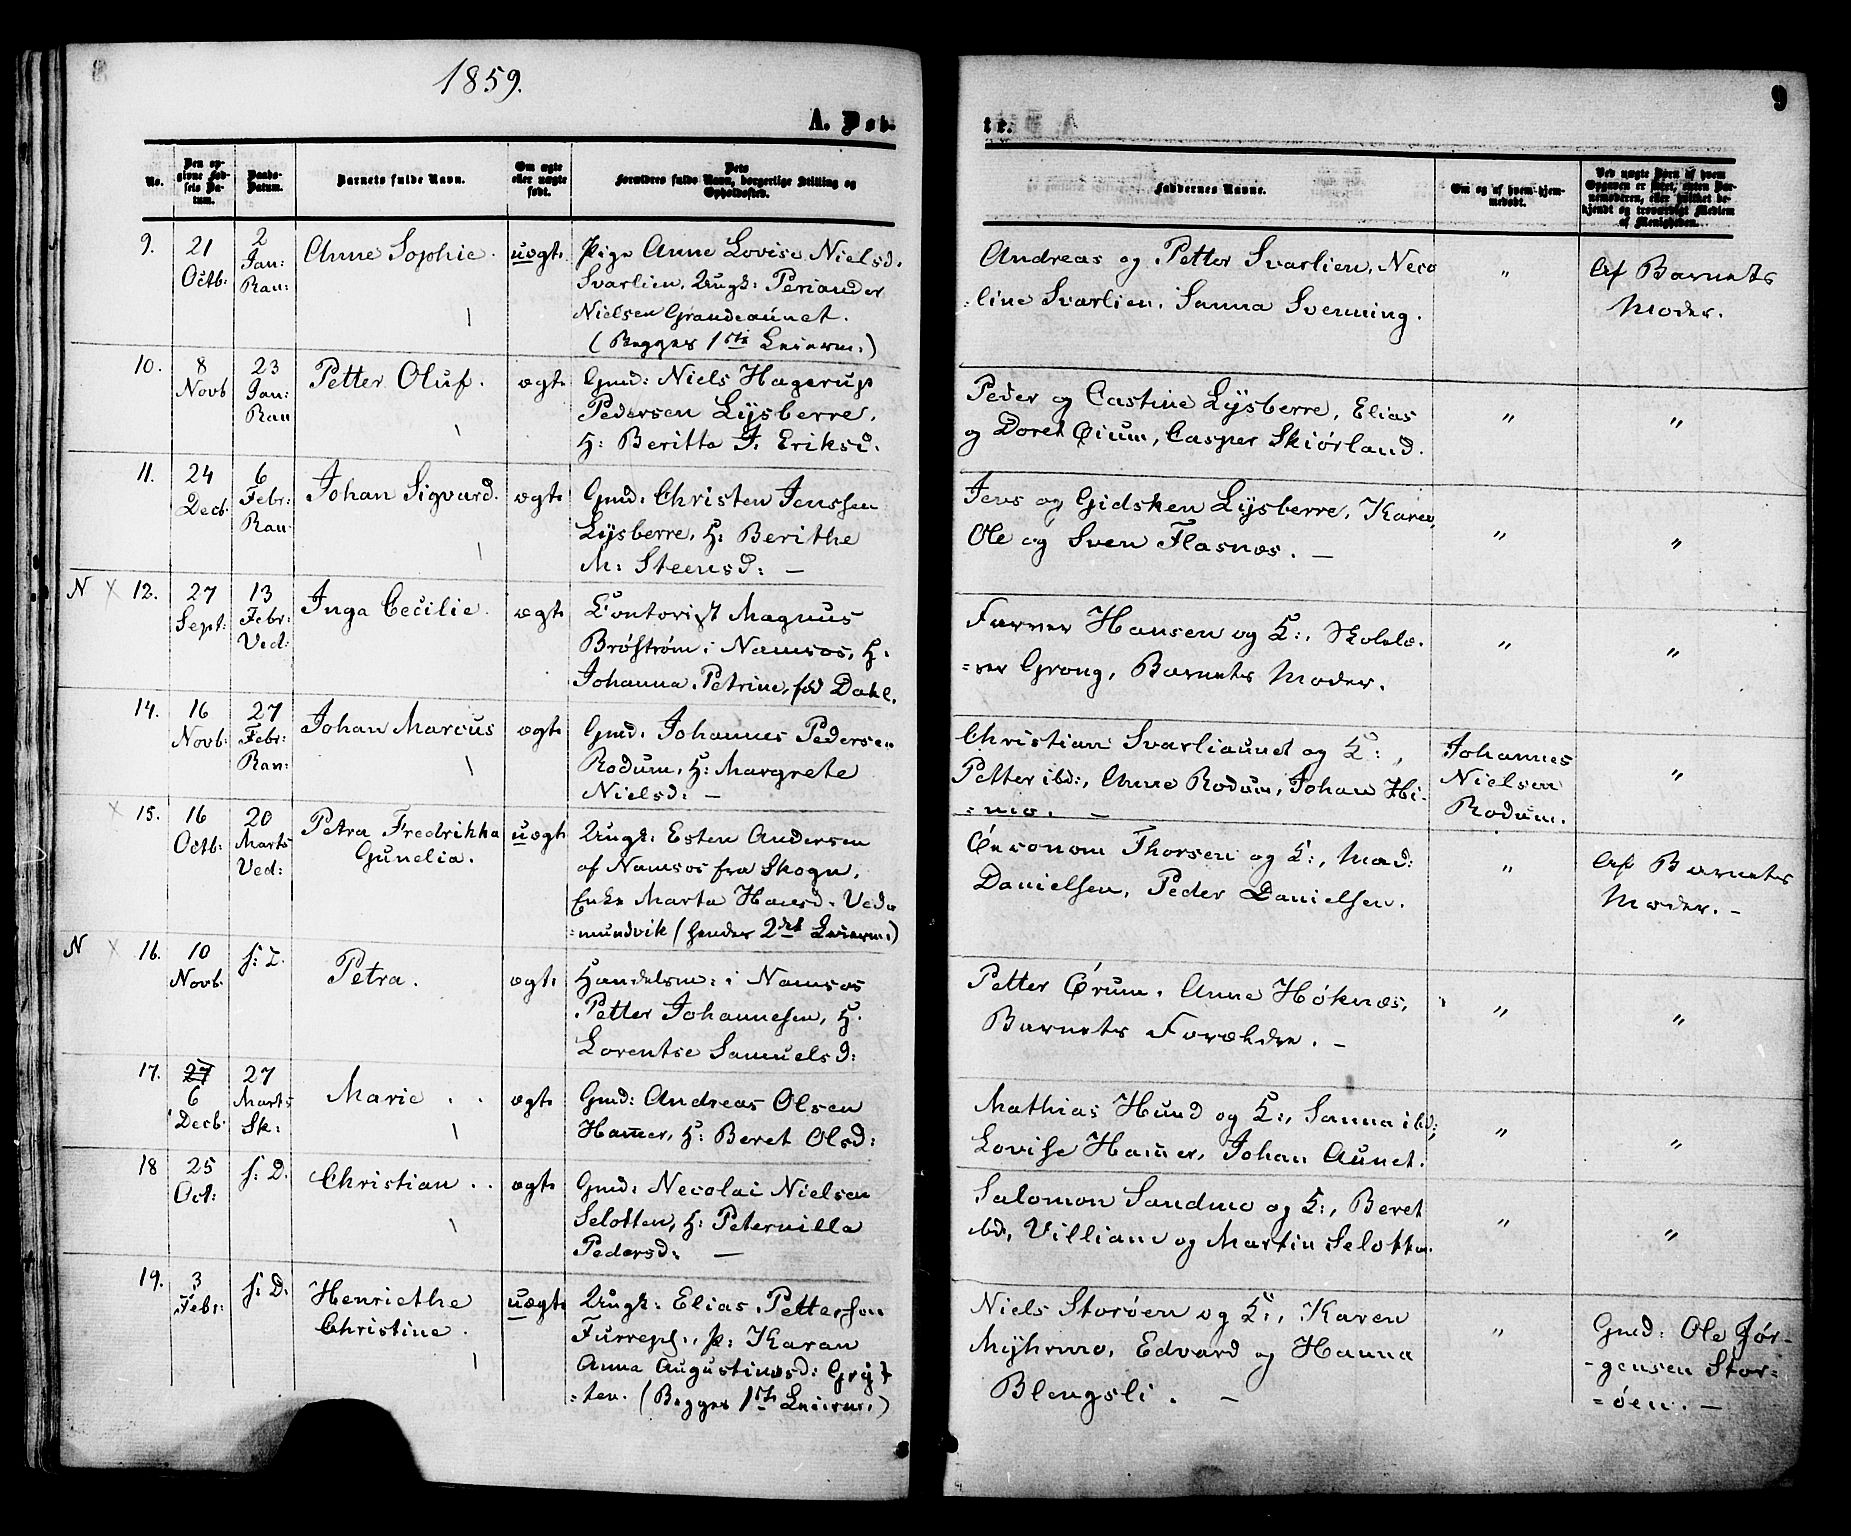 8
1859.
A. Døb-
No.
Den opgivne Fødsels Datum.
Daabs-Datum.
Barnets fulde Navn.
Om ægte eller uægte født.
Dets Forældres fulde Navn, borgerlige Stilling og Opholdssted.
9.
21 Octb:
2 Jan: Ran:
Anne Sophie.
uægte
Pige Anne Lovise Nielsd.
Svarlien, Ungk: Periander
Nielsen Grandeaunet.
(Begges 1ste Leierm:)
10.
8 Novb
23 Jan: Ran
Petter Oluf.
ægte
Gmd: Niels Hagerup
Pedersen Lysberre,
H: Beritta J. Eriksd.
11.
24 Decb.
6 Febr: Ran
Johan Sigvard.
ægte
Gmd: Christen Jenssen
Lysberre, H: Berithe
M: Steensd: —
N × 12.
27 Sept:
13 Febr: Ved:
Inga Cecilie.
ægte
Contorist Magnus
Brøstrøm i Namsos, H:
Johanna Petrine, fød Dahl.
14.
16 Novb:
27 Febr: Ran:
Johan Marcus
ægte
Gmd: Johannes Pedersen
Rodum, H: Margrete
Nielsd: —
× 15.
16 Octb:
20 Marts Ved:
Petra Fredrikka
Gunelia.
uægte
Ungk: Esten Andersen
af Namsos fra Skogn,
Enke Marta Hansd. Ved
=mundvik (hendes 2det Leierm:)
N × 16.
10 Novb.
s: T.
Petra.
ægte
Handelsm: i Namsos
Petter Johannesen, H.
Lorentse Samuelsd:
17.
27 6 Decb.
27 Marts Sk:
Marie . .
ægte
Gmd: Andreas Olsen
Ham̅er, H: Beret Olsd:
18
25 Oct:
s: D.
Christian . .
ægte
Gmd: Necolai Nielsen
Selotten, H: Peternilla
Pedersd: —
19.
3 Febr:
s: D.
Henriethe
Christine.
uægte
Ungk: Elias Petterson
Furrepl., p: Karan
Anna Augustinusd: Grøt
=ten. (Begges 1ste Leierm:)
9
te.
Faddernes Navne.
Om og af hvem hjemmedøbt.
Ved uægte Børn af hvem Opgaven er skeet, enten Barnemoderen, eller hvilket bekjendt og troværdigt Medlem af Menigheden.
Andreas og Petter Svarlien, Neco
=line Svarlien, Sanna Svenning.
"
Af Barnets
Moder.
Peder og Castine Lysberre, Elias
og Doret Øium, Casper Skiørland.
"
"
Jens og Gidsken Lysberre, Karen,
Ole og Sven Flasnæs. —
"
"
Farver Hansen og K:, Skolelæ=
=rer Grong, Barnets Moder.
"
"
Christian Svarliaunet og K:,
Petter ibd:, Anne Rodum, Johan Hi=
=mo. —
Johannes
Nielsen
Rodum.
"
Øconom Thorsen og K:, Mad:
Danielsen, Peder Danielsen.
"
Af Barnets
Moder. —
Petter Ørum, Anne Høknæs,
Barnets Forældre. —
"
"
Mathias Hund og K:, Sanna ibd:,
Lovise Ham̅er, Johan Aunet.
"
"
Salomon Sandmo og K:, Beret
ibd, Villiam og Martin Selotten.
"
"
Niels Storøen og K:, Karen
Myhrmo, Edvard og Hanna
Blengsli. —
"
Gmd: Ole Jør-
-gensen Stor=
=øen. —